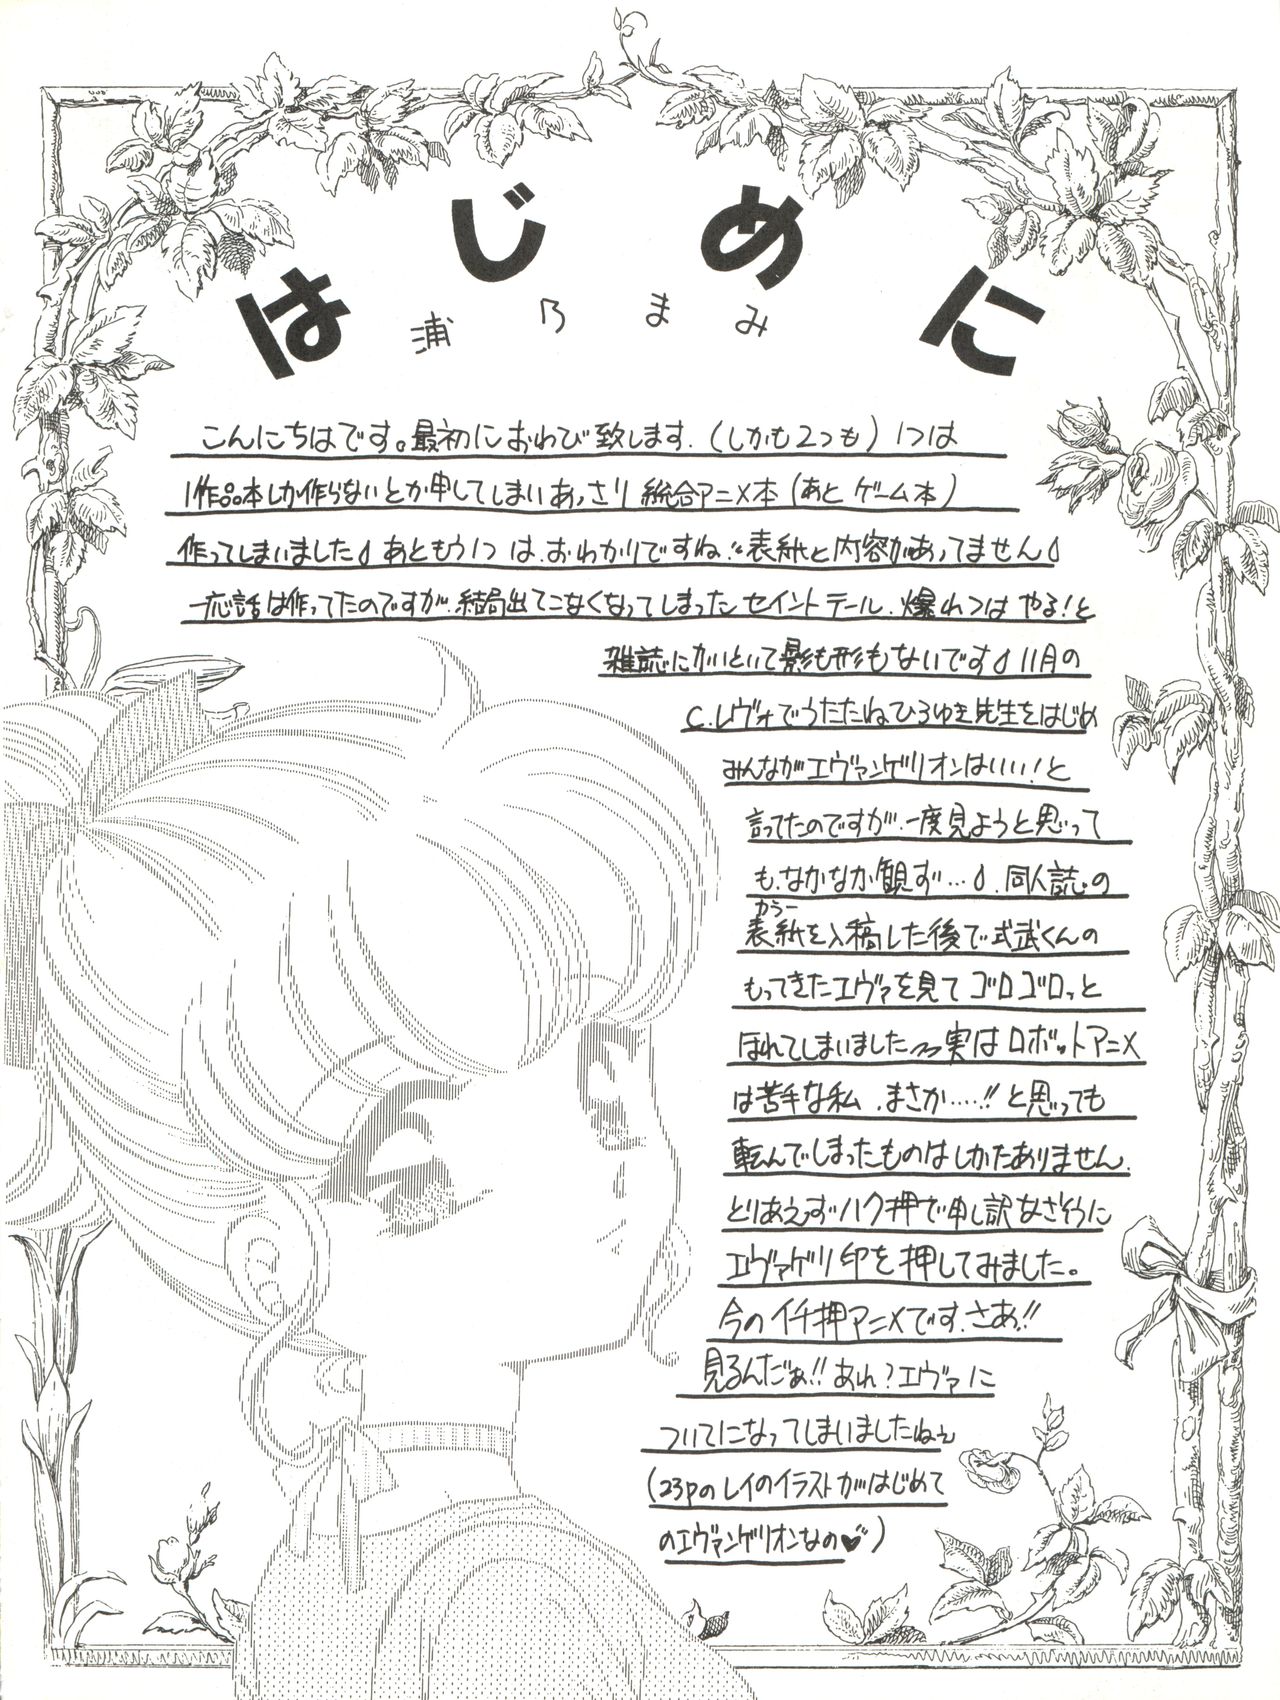 はじめに
浦乃まみ
こんにちはです。最初におわび致します.(しかも2つも)1つは
1作品本しか作らないとか申してしまいあっさり総合アニメ本(あとゲーム本)
作ってしまいました あともう1つは、おわかりですね!!表紙と内容があってません
一応話は作ってたのですが、結局出てこなくなってしまったセイントテール、爆れつはやる!と
雑誌にかいといて影も形もないです 11月の
C.レヴォでうたたねひろゆき先生をはじめ
みんながエヴァンゲリオンはいい!と
言ってたのですが、一度見ようと思って
も、なかなか観ず… 同人誌の
カラー
表紙を入稿した後で式武くんの
もってきたエヴァを見てゴロゴロっと
ほれてしまいました〜実はロボットアニメ
は苦手な私、まさか……!!と思っても
転んでしまったものはしかたありません.
とりあえずハク押で申し訳なさそうに
エヴァゲリ印を押してみました。
今のイチ押アニメです.さあ!!
見るんだぁ!!あれ?エヴァに
ついてになってしまいましたねぇ
(23Pのレイのイラストがはじめて
のエヴァンゲリオンなの♥)